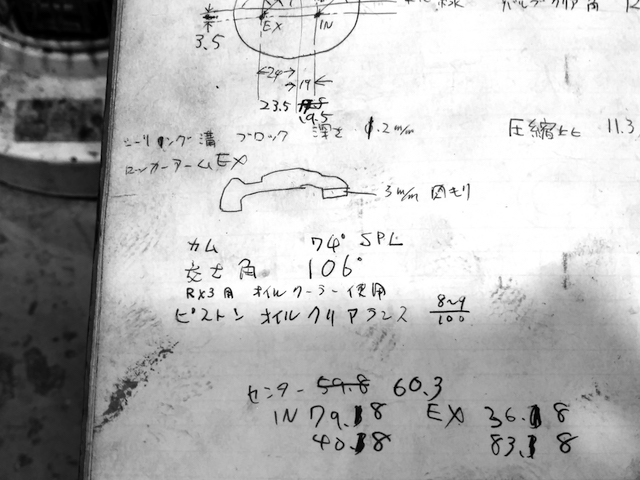 EX IN
3.5
24
19
23.5
19.5
シーリング溝 ブロック 深さ 1.2 m/m
圧縮比 11.3
ロッカーアームEX
3 m/m 肉もり
カム 74° SPL
交サ角 106°
RX3用 オイルクーラー使用
ピストン オイルクリアランス 8~9/100
センター 59.8 60.3
IN 79.18 EX 36.18
40.18 83.18